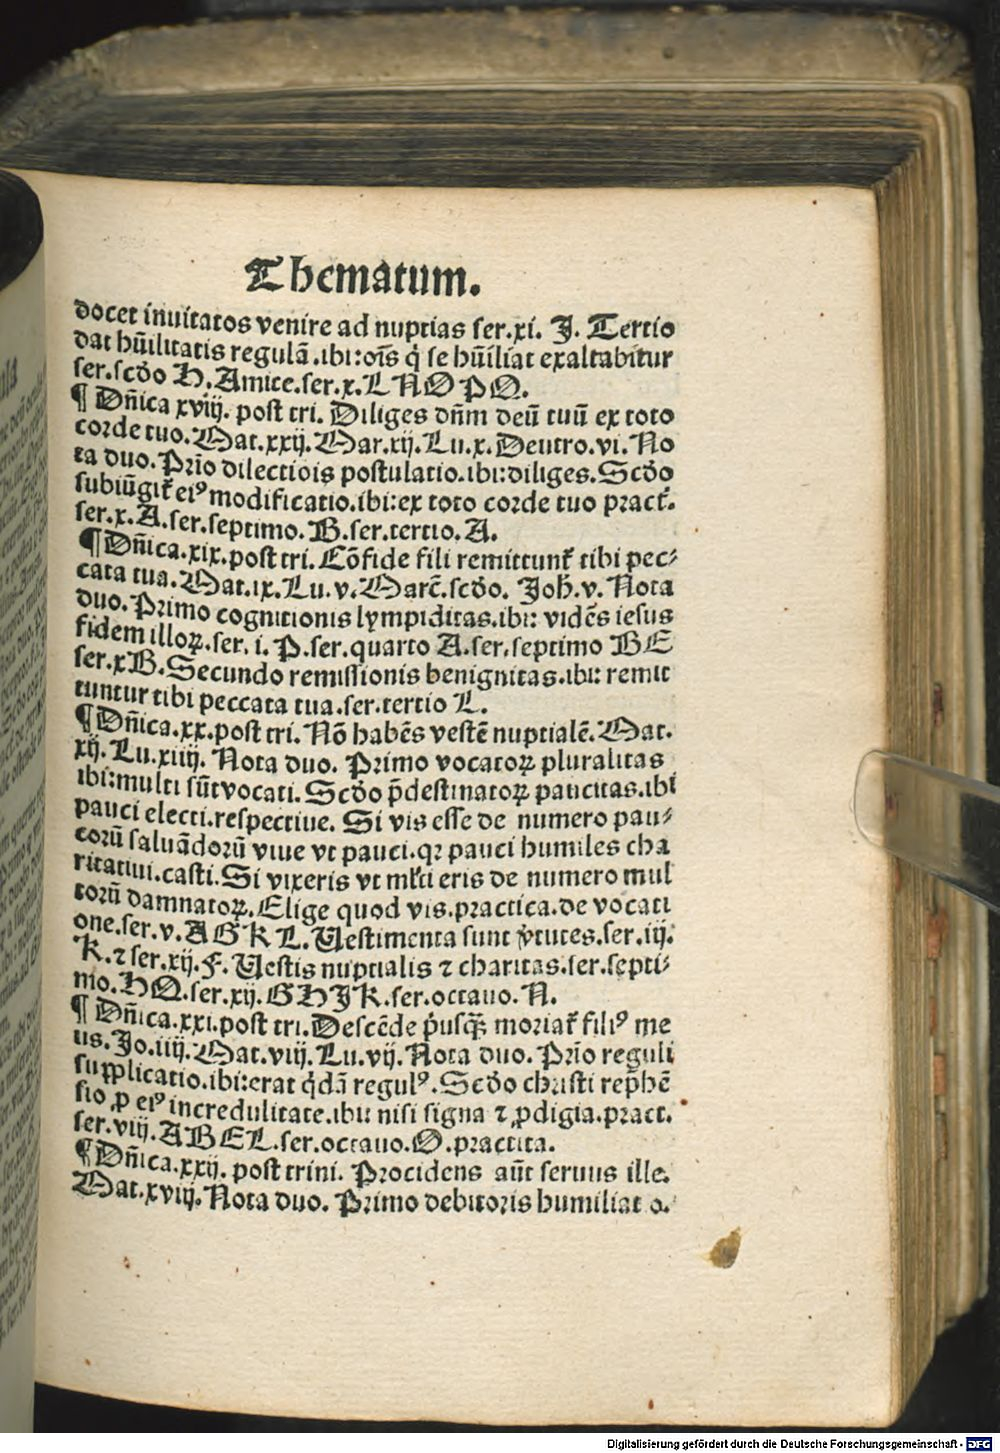 Thematum.
docet inuitatos venire ad nuptias ser.xi. J. Tertio
dat hũilitatis regulã.ibi:oĩs q̇ se hũiliat exaltabitur
ser.scďo H. Amice.ser.x.L N O P Q.
¶ Dñica xviij. post tri. Diliges dñm deũ tuũ ex toto
corde tuo. Mat.xxij. Mar.xij. Lu.x. Deutro.vi. No
ta duo. Prĩo dilectiõis postulatio.ibi:diliges. Scďo
subiũgit᷑ eiꝰ modificatio.ibi:ex toto corde tuo pract᷑.
ser.x. A.ser.septimo. B.ser.tertio. A.
¶ Dñica.xix.post tri. Cõfide fili remittunt᷑ tibi pec⸗
cata tua. Mat.ix. Lu.v. Marc̃.scďo. Joh̃.v. Nota
duo. Primo cognitionis lympiditas.ibi: vidẽs iesus
fidem illoꝝ.ser. i. P.ser.quarto A.ser.septimo B E
ser.x B. Secundo remissionis benignitas.ibi: remit
tuntur tibi peccata tua.ser.tertio L.
¶ Dñica.xx.post tri. Nõ habẽs vestẽ nuptialẽ. Mat.
xij. Lu.xiiij. Nota duo. Primo vocatoꝝ pluralitas
ibi:multi sũt vocati. Scďo p̃destinatoꝝ paucitas.ibi
pauci electi.respectiue. Si vis esse de numero pau⸗
corũ saluãdorũ viue vt pauci.qꝛ pauci humiles cha
ritatiui.casti. Si vixeris vt ml̃ti eris de numero mul
torũ damnatoꝝ. Elige quod vis.practica.de vocati
one.ser.v. A G K L. Uestimenta sunt v̓tutes.ser.iij.
K.⁊ ser.xij. F. Uestis nuptialis ⁊ charitas.ser.septi⸗
mo. H Q.ser.xij. G H J K.ser.octauo. N.
¶ Dñica.xxi.post tri. Descẽde p̓usq̃ꝫ moriat᷑ filiꝰ me
us. Jo.iiij. Mat.viij. Lu.vij. Nota duo. Prĩo reguli
supplicatio.ibi:erat q̇dã regulꝰ. Scďo christi rep̃hẽ
sio ꝓ eiꝰ incredulitate.ibi: nisi signa ⁊ ꝓdigia.pract.
ser.viij. A B E L.ser.octauo. O.practita.
¶ Dñica.xxij. post trini. Procidens aũt seruus ille.
Mat.xviij. Nota duo. Primo debitoris humiliat o.
Digitalisierung gefördert durch die Deutsche Forschungsgemeinschaft - DFG